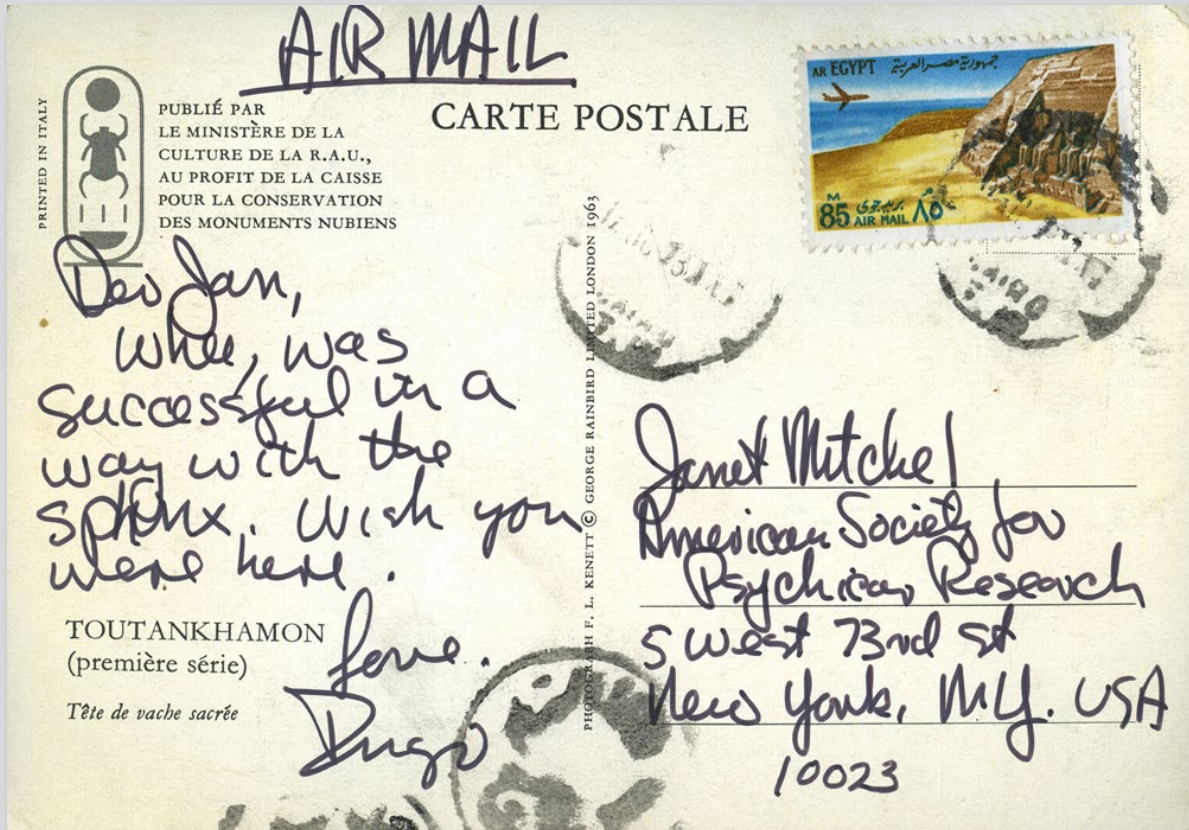 AIR MAIL
PRINTED IN ITALY
PUBLIÉ PAR
LE MINISTÈRE DE LA
CULTURE DE LA R.A.U.,
AU PROFIT DE LA CAISSE
POUR LA CONSERVATION
DES MONUMENTS NUBIENS
CARTE POSTALE
AR EGYPT جمهورية مصر العربية
M
85 بريد جوى ٨٥ م
AIR MAIL
CAIRO
Dear Jan,
Whee, was
successful in a
way with the
sphinx. Wish you
were here.
Love.
TOUTANKHAMON
(première série)
Tête de vache sacrée
PHOTOGRAPH F. L. KENETT © GEORGE RAINBIRD LIMITED LONDON 1963
Janet Mitchel
American Society for
Psychical Research
5 West 73rd St
New York, N.Y. USA
10023